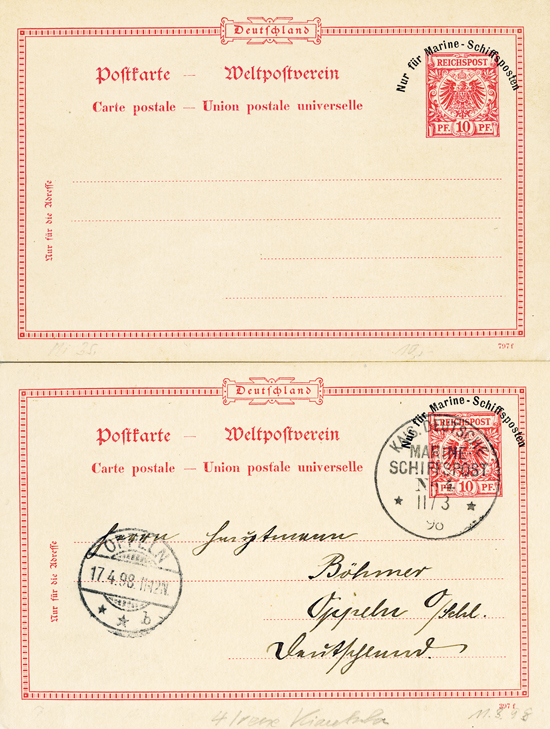 Deutschland
Nur für Marine-Schiffsposten
REICHSPOST
PF. 10 PF.
Postkarte — Weltpostverein
Carte postale — Union postale universelle
Nur für die Adresse
797f
Deutschland
Nur für Marine-Schiffsposten
REICHSPOST
PF. 10 PF.
Postkarte — Weltpostverein
Carte postale — Union postale universelle
KAIS. DEUTSCHE
MARINE
SCHIFFSPOST
No 4
11/3
98
Nur für die Adresse
OPPELN
17.4.98
b
Herrn Hauptmann
Böhmer
Oppeln O/Schl.
Deutschland.
797f
11.3.98